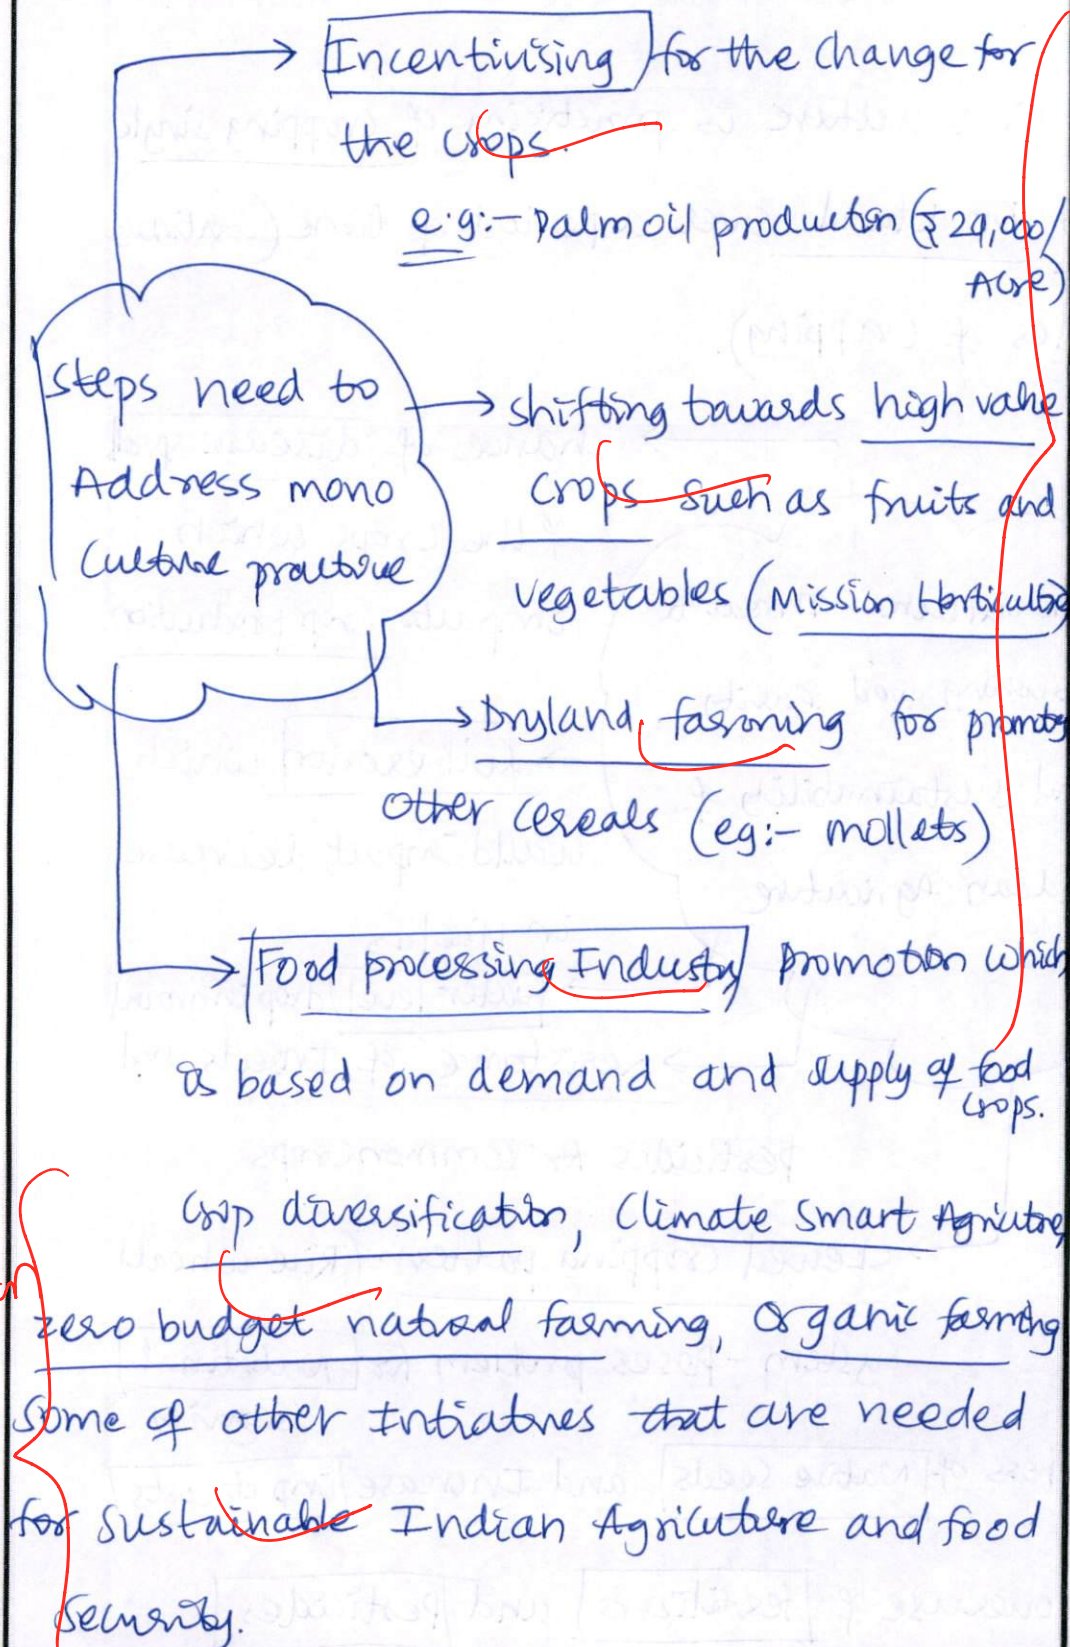 Incentivising for the change for
the crops.
e.g:- Palm oil production (₹29,000/
Acre)
Steps need to
Address mono
Culture practice
→ Shifting towards high value
crops such as fruits and
vegetables (Mission Horticulture)
→ Dryland farming for promotg
Other cereals (eg:- mollets)
→ Food processing Industry promotion which
is based on demand and supply of food
crops.
Crop diversification, Climate Smart Agriculture,
zero budget natural farming, Organic farming
Some of other Intiatives that are needed
for Sustainable Indian Agriculture and food
Security.